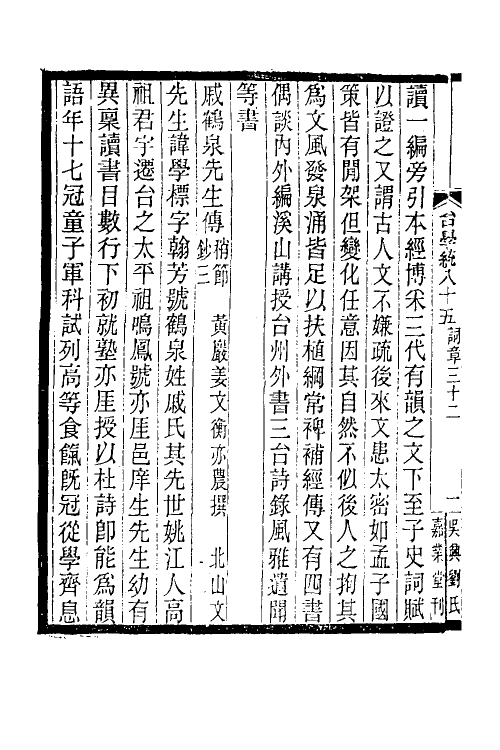 台學統八十五 詞章三十二 一 吳興劉氏嘉業堂刊
讀一編旁引本經博采三代有韻之文下至子史詞賦
以證之又謂古人文不嫌疏後來文患太密如孟子國
策皆有閒架但變化任意因其自然不似後人之拘其
爲文風發泉涌皆足以扶植綱常裨補經傳又有四書
偶談內外編溪山講授台州外書三台詩錄風雅遺聞
等書
戚鶴泉先生傳 稍節 黃巖姜文衡亦農撰 北山文鈔三
先生諱學標字翰芳號鶴泉姓戚氏其先世姚江人高
祖君宇遷台之太平祖鳴鳳號亦厓邑庠生先生幼有
異稟讀書目數行下初就塾亦厓授以杜詩卽能爲韻
語年十七冠童子軍科試列高等食餼旣冠從學齊息